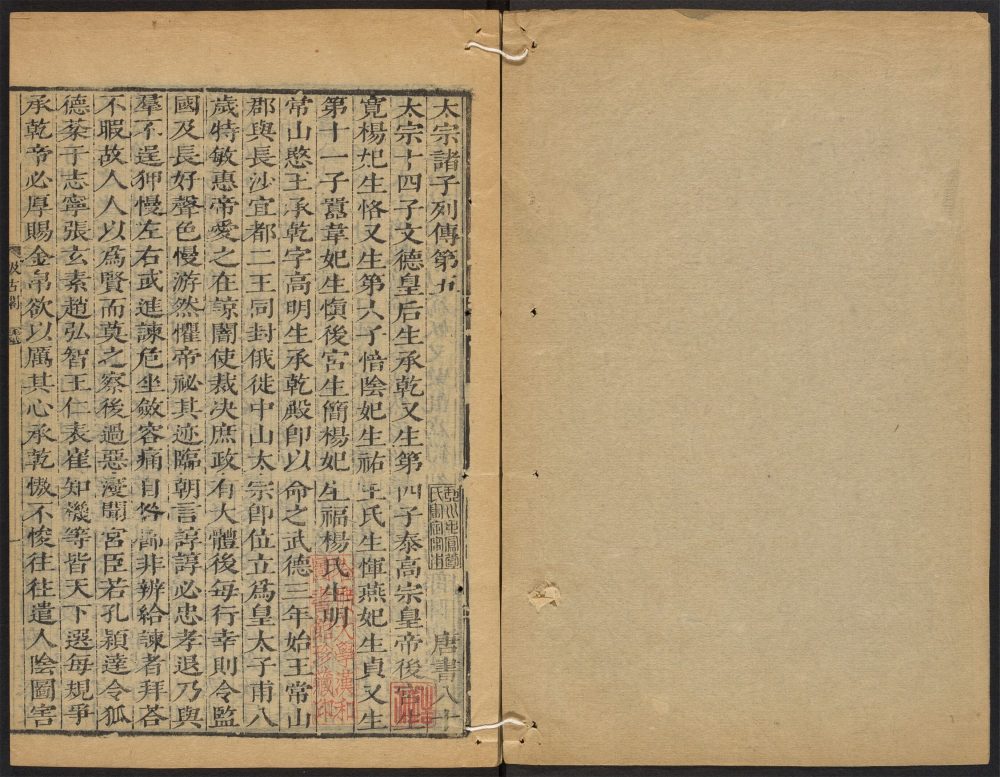 太宗諸子列傳第五 唐書八十
太宗十四子文德皇后生承乾又生第四子泰高宗皇帝後宮生
寬楊妃生恪又生第六子愔陰妃生祐王氏生惲燕妃生貞又生
第十一子囂韋妃生愼後宮生簡楊妃生福楊氏生明
常山愍王承乾字高明生承乾殿卽以命之武德三年始王常山
郡與長沙宜都二王同封俄徙中山太宗卽位立爲皇太子甫八
歲特敏惠帝愛之在諒闇使裁決庶政有大體後每行幸則令監
國及長好聲色慢游然懼帝祕其迹臨朝言諄諄必忠孝退乃與
羣不逞狎慢左右或進諫危坐斂容痛自咎飾非辨給諫者拜荅
不暇故人人以爲賢而莫之察後過惡寖聞宮臣若孔穎達令狐
德棻于志寧張玄素趙弘智王仁表崔知機等皆天下選每規爭
承乾帝必厚賜金帛欲以厲其心承乾慠不悛往往遣人陰圖害
汲古閣